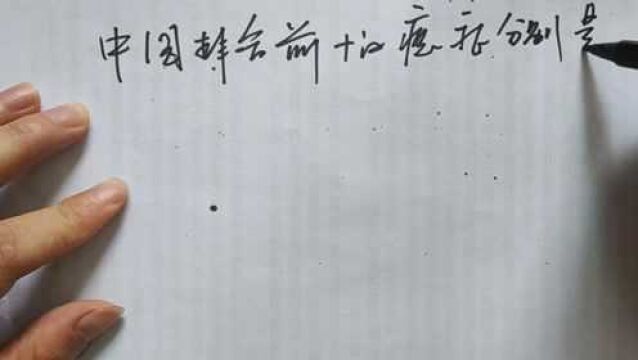 中国排名前十的癌症分别是